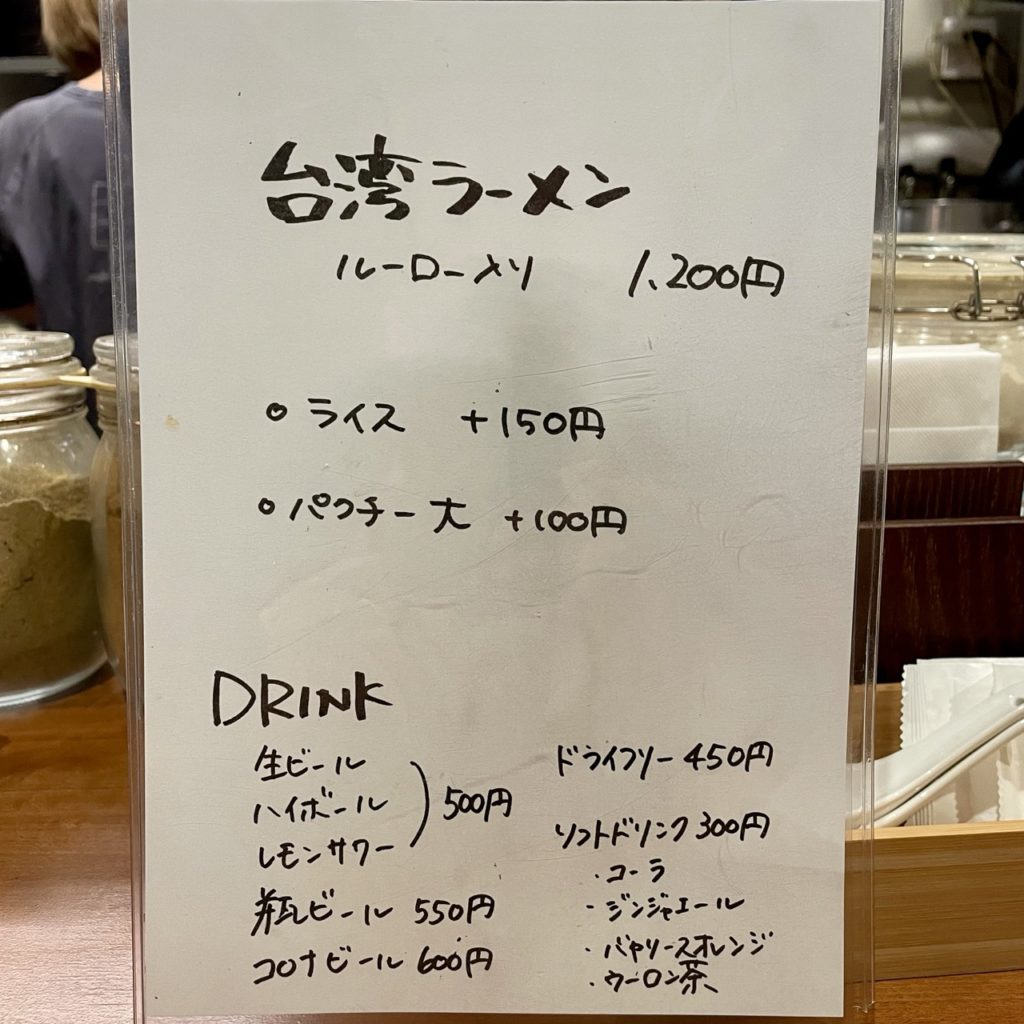 台湾ラーメン
ルーロー入り 1,200円
○ ライス +150円
○ パクチー大 +100円
DRINK
生ビール
ハイボール
レモンサワー
500円
瓶ビール 550円
コロナビール 600円
ドライフリー 450円
ソフトドリンク 300円
・コーラ
・ジンジャエール
・バヤリースオレンジ
・ウーロン茶